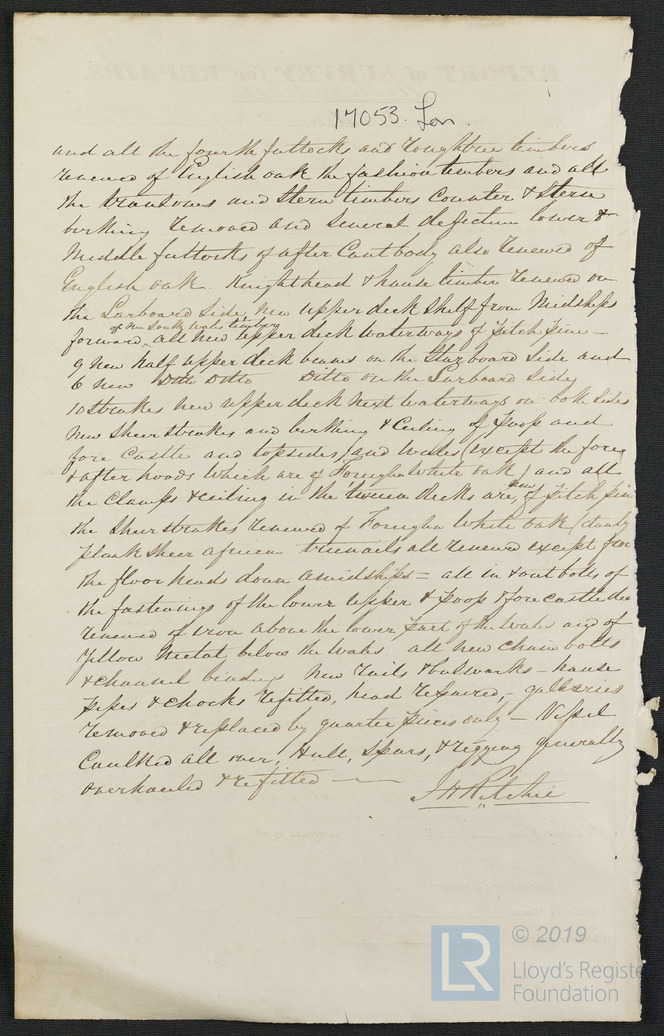 17053. Lon.
and all the fourth futtocks and toughtree timbers
renewed of English oak the fashion timbers and all
the transoms and Stern timbers Counter & Stern
birthing removed and several defective lower &
Middle futtocks of after Cant body also renewed of
English oak. Knighthead & hause timber renewed on
the Larboard Side, New upper deck shelf from Midships
forward of New South Wales timber, all new upper deck waterways of pitch pine —
9 new half upper deck beams on the Starboard Side and
6 new Ditto Ditto Ditto on the Larboard Side
10 strakes new upper deck next waterways on both sides
New Sheerstrakes and birthing & Ceiling of Poop and
fore Castle and topsides, and wales (except the fore
& after hoods which are of Foreign White oak) and all
the Clamps & ceiling in the tween decks are new of pitch pin
the Sheer strakes renewed of Foreign White oak
plank Sheer African treenails all renewed except from
the floor heads down amidships = all in & out bolts of
the fastenings of the lower upper & poop & fore castle dec
renewed of iron above the lower part of the wales and of
yellow Metal below the Wales. all new Chain bolts
& channel bindings New rails & bulwarks — hause
pipes & chocks refitted, head repaired, — galleries
removed & replaced by quarter pieces only — Vessel
Caulked all over, Hull, Spars, & rigging generally
overhauled & refitted —
J H Ritchie
© 2019
LR
Lloyd's Registe
Foundation